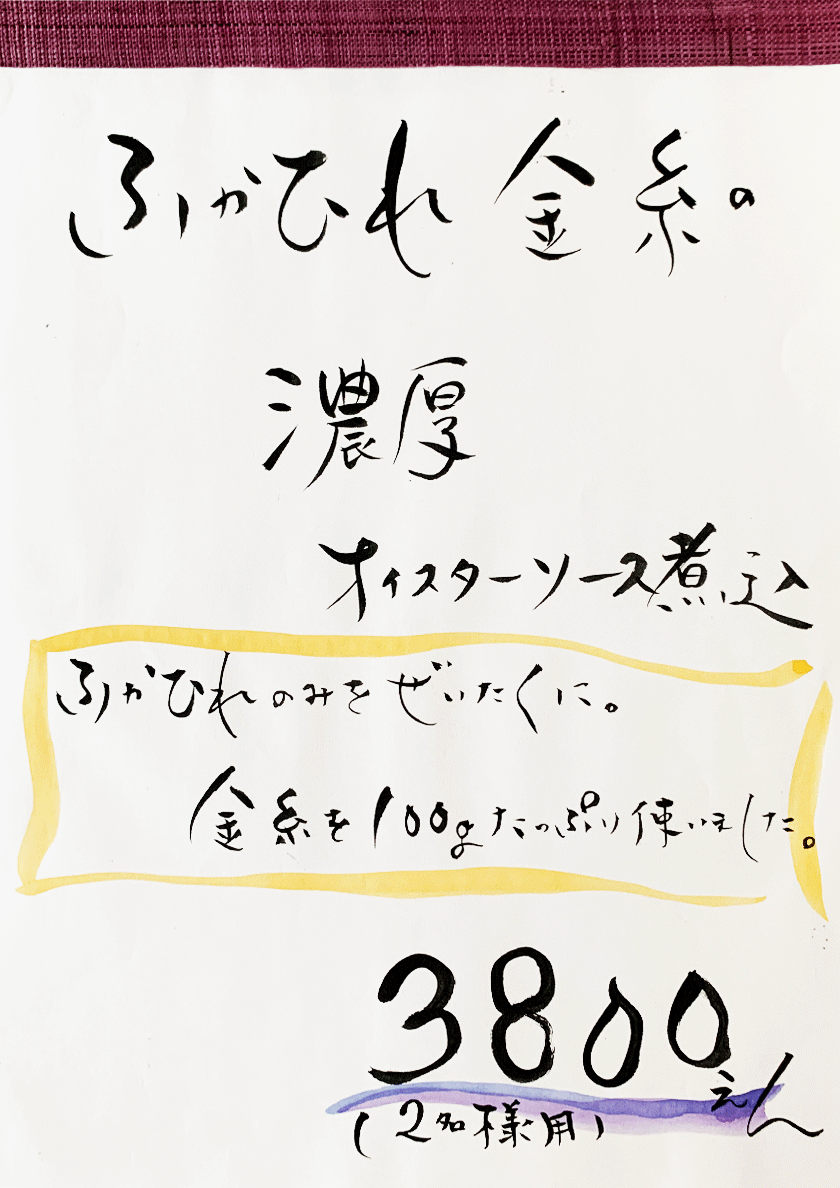 ふかひれ金糸の
濃厚
オイスターソース煮込
ふかひれのみをぜいたくに。
金糸を100gたっぷり使いました。
3800えん
(2名様用)